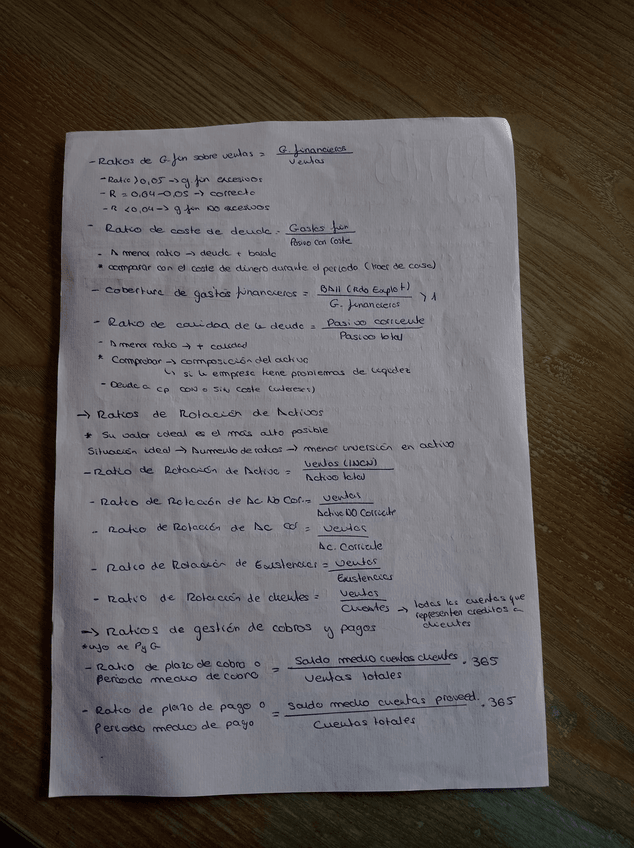 - Ratios de G fin sobre ventas = G. financieros / Ventas
- Ratio > 0,05 → g. fin excesivos
- R = 0,04-0,05 → correcto
- R < 0,04 → g fin NO excesivos
- Ratio de coste de deuda = Gastos fin / Pasivo con coste
- A menor ratio → deuda + barata
* comparar con el coste de dinero durante el periodo (traer de casa)
- Cobertura de gastos financieros = BAII (Rdo Explot) / G. financieros > 1
- Ratio de calidad de la deuda = Pasivo corriente / Pasivo total
- A menor ratio → + calidad
* Comprobar → composición del activo
↳ si la empresa tiene problemas de liquidez
- Deuda a cp con o sin coste (intereses)
→ Ratios de Rotación de Activos
* Su valor ideal es el más alto posible
Situación ideal → Aumento de ratios → menor inversión en activo
- Ratio de Rotación de Activo = Ventas (INCN) / Activo total
- Ratio de Rotación de Ac No Cor. = Ventas / Activo NO Corriente
- Ratio de Rotación de Ac Cor = Ventas / Ac. Corriente
- Ratio de Rotación de Existencias = Ventas / Existencias
- Ratio de Rotación de clientes = Ventas / Clientes → todas las cuentas que
representen creditos a
clientes
→ Ratios de gestión de cobros y pagos
de P y G
- Ratio de plazo de cobro o
periodo medio de cobro = Saldo medio cuentas clientes / Ventas totales · 365
- Ratio de plazo de pago o
Periodo medio de pago = Saldo medio cuentas proveed. / Cuentas totales · 365